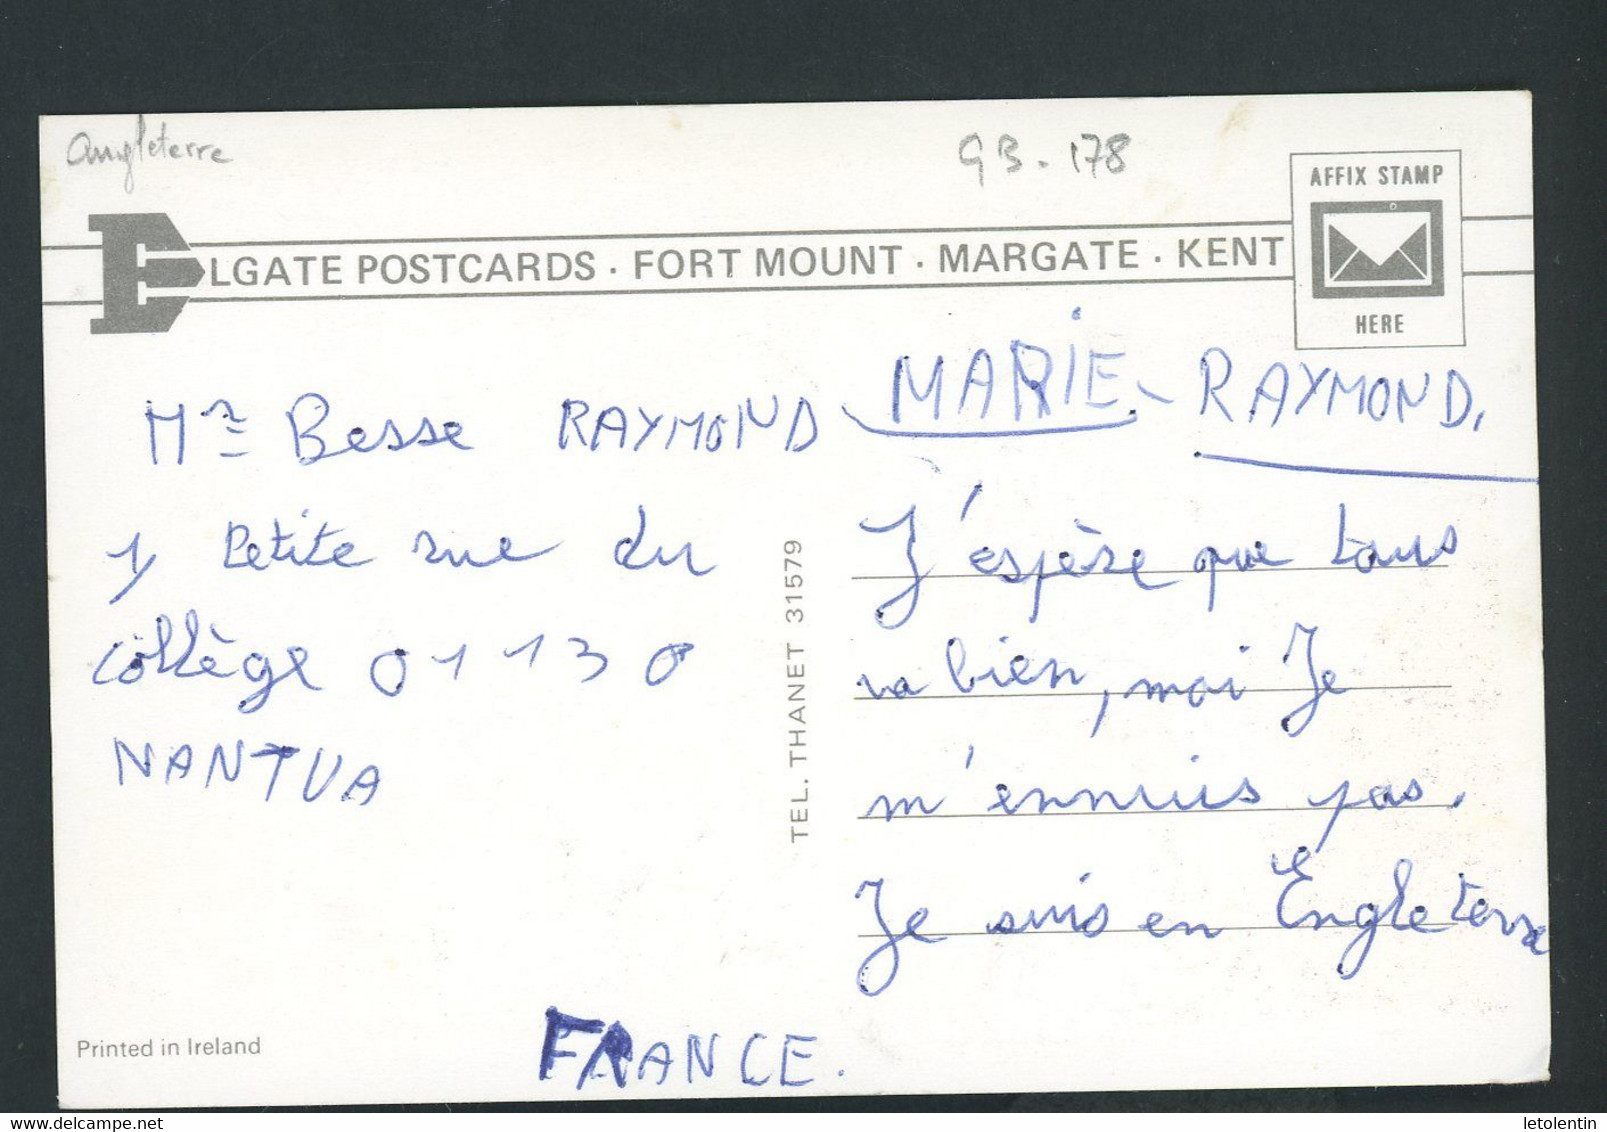 Angleterre
GB. 178
ELGATE POSTCARDS · FORT MOUNT · MARGATE · KENT
AFFIX STAMP
HERE
Mr Besse RAYMOND
1, Petite rue du
collège 01130
NANTUA
FRANCE.
Printed in Ireland
TEL. THANET 31579
MARIE - RAYMOND,
J'espère que tous
va bien, moi Je
m'ennuis pas.
Je suis en Engleterre
www.delcampe.net
letolentin